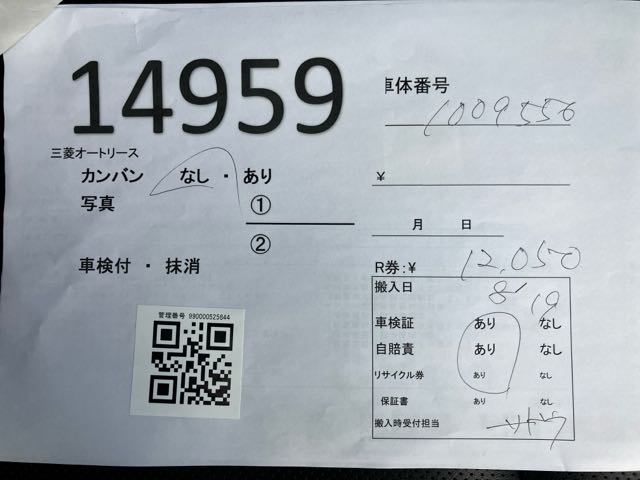 14959
車体番号
1009556
三菱オートリース
カンバン なし ・ あり
¥
写真 ①
②
月 日
車検付 ・ 抹消
R券:¥ 12,050
搬入日 8/19
車検証 あり なし
自賠責 あり なし
リサイクル券 あり なし
保証書 あり なし
搬入時受付担当
管理番号 990000525844